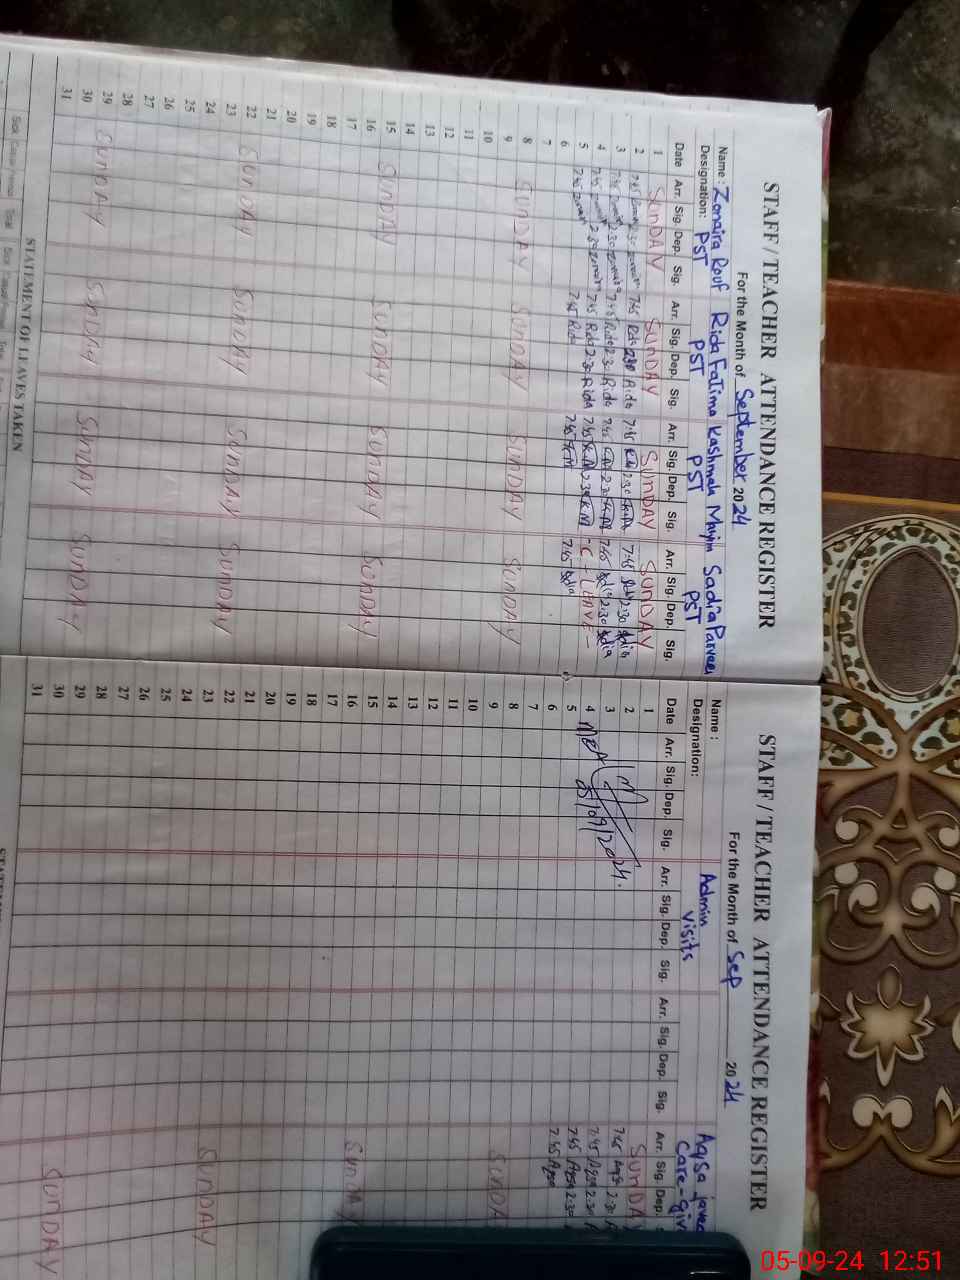 STAFF / TEACHER ATTENDANCE REGISTER
For the Month of September 2024
Name : Zonaira Rouf Rida Fatima Kashmala Sadia Parveen
Designation: PST PST PST PST
Date Arr. Sig. Dep. Sig. Arr. Sig. Dep. Sig. Arr. Sig. Dep. Sig. Arr. Sig. Dep. Sig.
1 SUNDAY SUNDAY SUNDAY SUNDAY
2 7:45 2:30 7:45 Rida 2:30 Rida 7:45 KM 2:30 KM 7:45 2:30
3 7:45 2:30 7:45 Rida 2:30 Rida 7:45 KM 2:30 KM 7:45 2:30
4 7:45 2:30 7:45 Rida 2:30 Rida 7:45 KM 2:30 KM - C - LEAVE -
5 7:45 7:45 Rida 7:45 KM 7:45
6
7
8 SUNDAY SUNDAY SUNDAY SUNDAY
9
10
11
12
13
14
15 SUNDAY SUNDAY SUNDAY SUNDAY
16
17
18
19
20
21
22 SUNDAY SUNDAY SUNDAY SUNDAY
23
24
25
26
27
28
29 SUNDAY SUNDAY SUNDAY SUNDAY
30
31
STATEMENT OF LEAVES TAKEN
STAFF / TEACHER ATTENDANCE REGISTER
For the Month of Sep 2024
Name : Admin Aqsa javed
Designation: visits Care-giv
Date Arr. Sig. Dep. Sig. Arr. Sig. Dep. Sig. Arr. Sig. Dep. Sig. Arr. Sig. Dep.
1 SUNDAY
2 7:45 Aqsa 2:30
3 7:45 Aqsa 2:30
4 MEA 7:45 Aqsa 2:30
5 05/09/2024. 7:45 Aqsa
6
7
8 SUNDA
9
10
11
12
13
14
15 SUNDAY
16
17
18
19
20
21
22 SUNDAY
23
24
25
26
27
28
29 SUNDAY
30
31
05-09-24 12:51